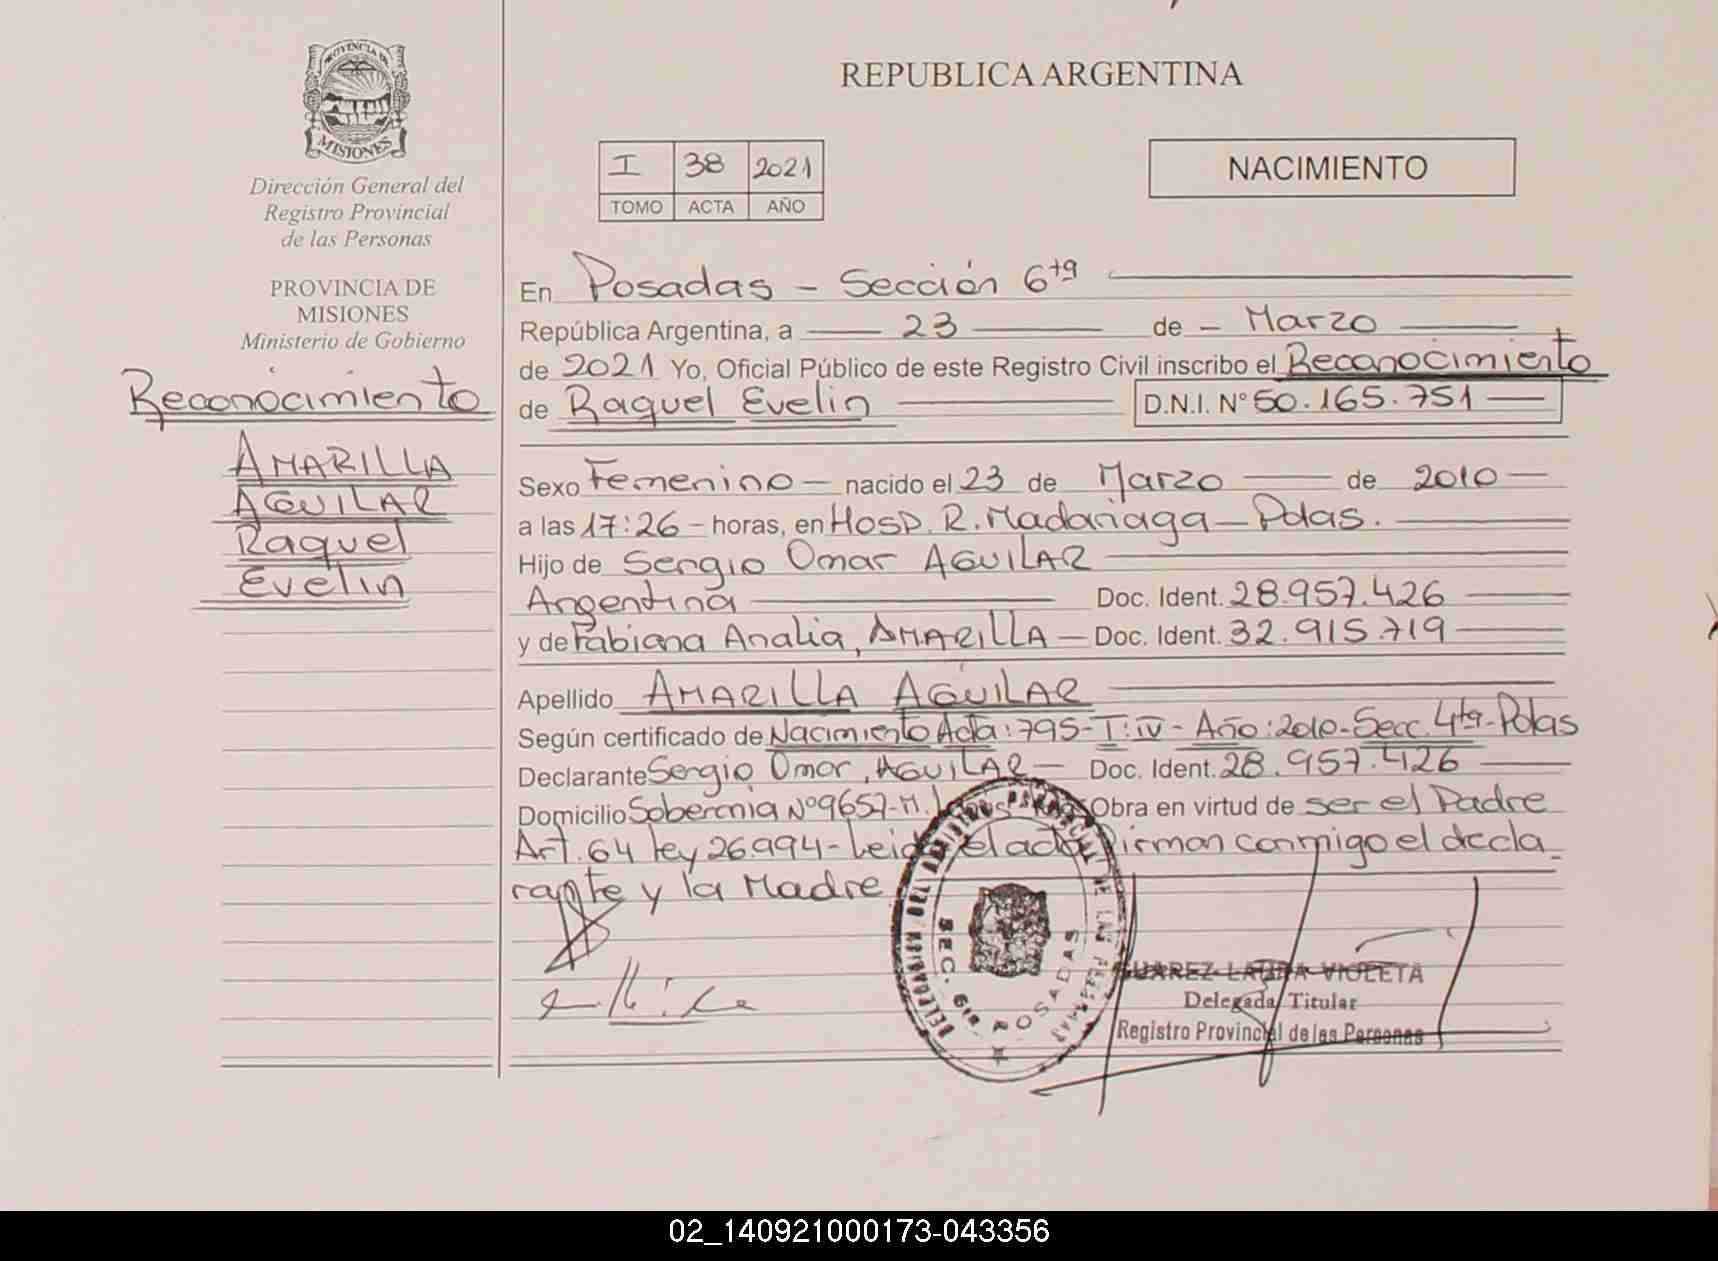 PROVINCIA DE
MISIONES
Dirección General del
Registro Provincial
de las Personas
PROVINCIA DE
MISIONES
Ministerio de Gobierno
Reconocimiento
AMARILLA
AGUILAR
Raquel
Evelin
REPUBLICA ARGENTINA
I 38 2021
TOMO ACTA AÑO
NACIMIENTO
En Posadas - Sección 6ta
República Argentina, a 23 de - Marzo
de 2021 Yo, Oficial Público de este Registro Civil inscribo el Reconocimiento
de Raquel Evelin D.N.I. N° 50.165.751
Sexo Femenino - nacido el 23 de Marzo de 2010
a las 17:26 - horas, en Hosp. R. Madariaga - Pdas.
Hijo de Sergio Omar AGUILAR
Argentina Doc. Ident. 28.957.426
y de Fabiana Analia, AMARILLA - Doc. Ident. 32.915.719
Apellido AMARILLA AGUILAR
Según certificado de Nacimiento Acta: 795-T: IV - Año: 2010 - Secc. 4ta - Pdas
Declarante Sergio Omar, AGUILAR - Doc. Ident. 28.957.426
Domicilio Soberania N° 9657-M. Obra en virtud de ser el Padre
Art. 64 Ley 26.994 - Leida el acta Firman conmigo el decla
rante y la Madre
DELEGACION DEL REGISTRO PROVINCIAL DE LAS PERSONAS
SEC. 6ta POSADAS
SUAREZ LAURA VIOLETA
Delegada Titular
Registro Provincial de las Personas
02_140921000173-043356